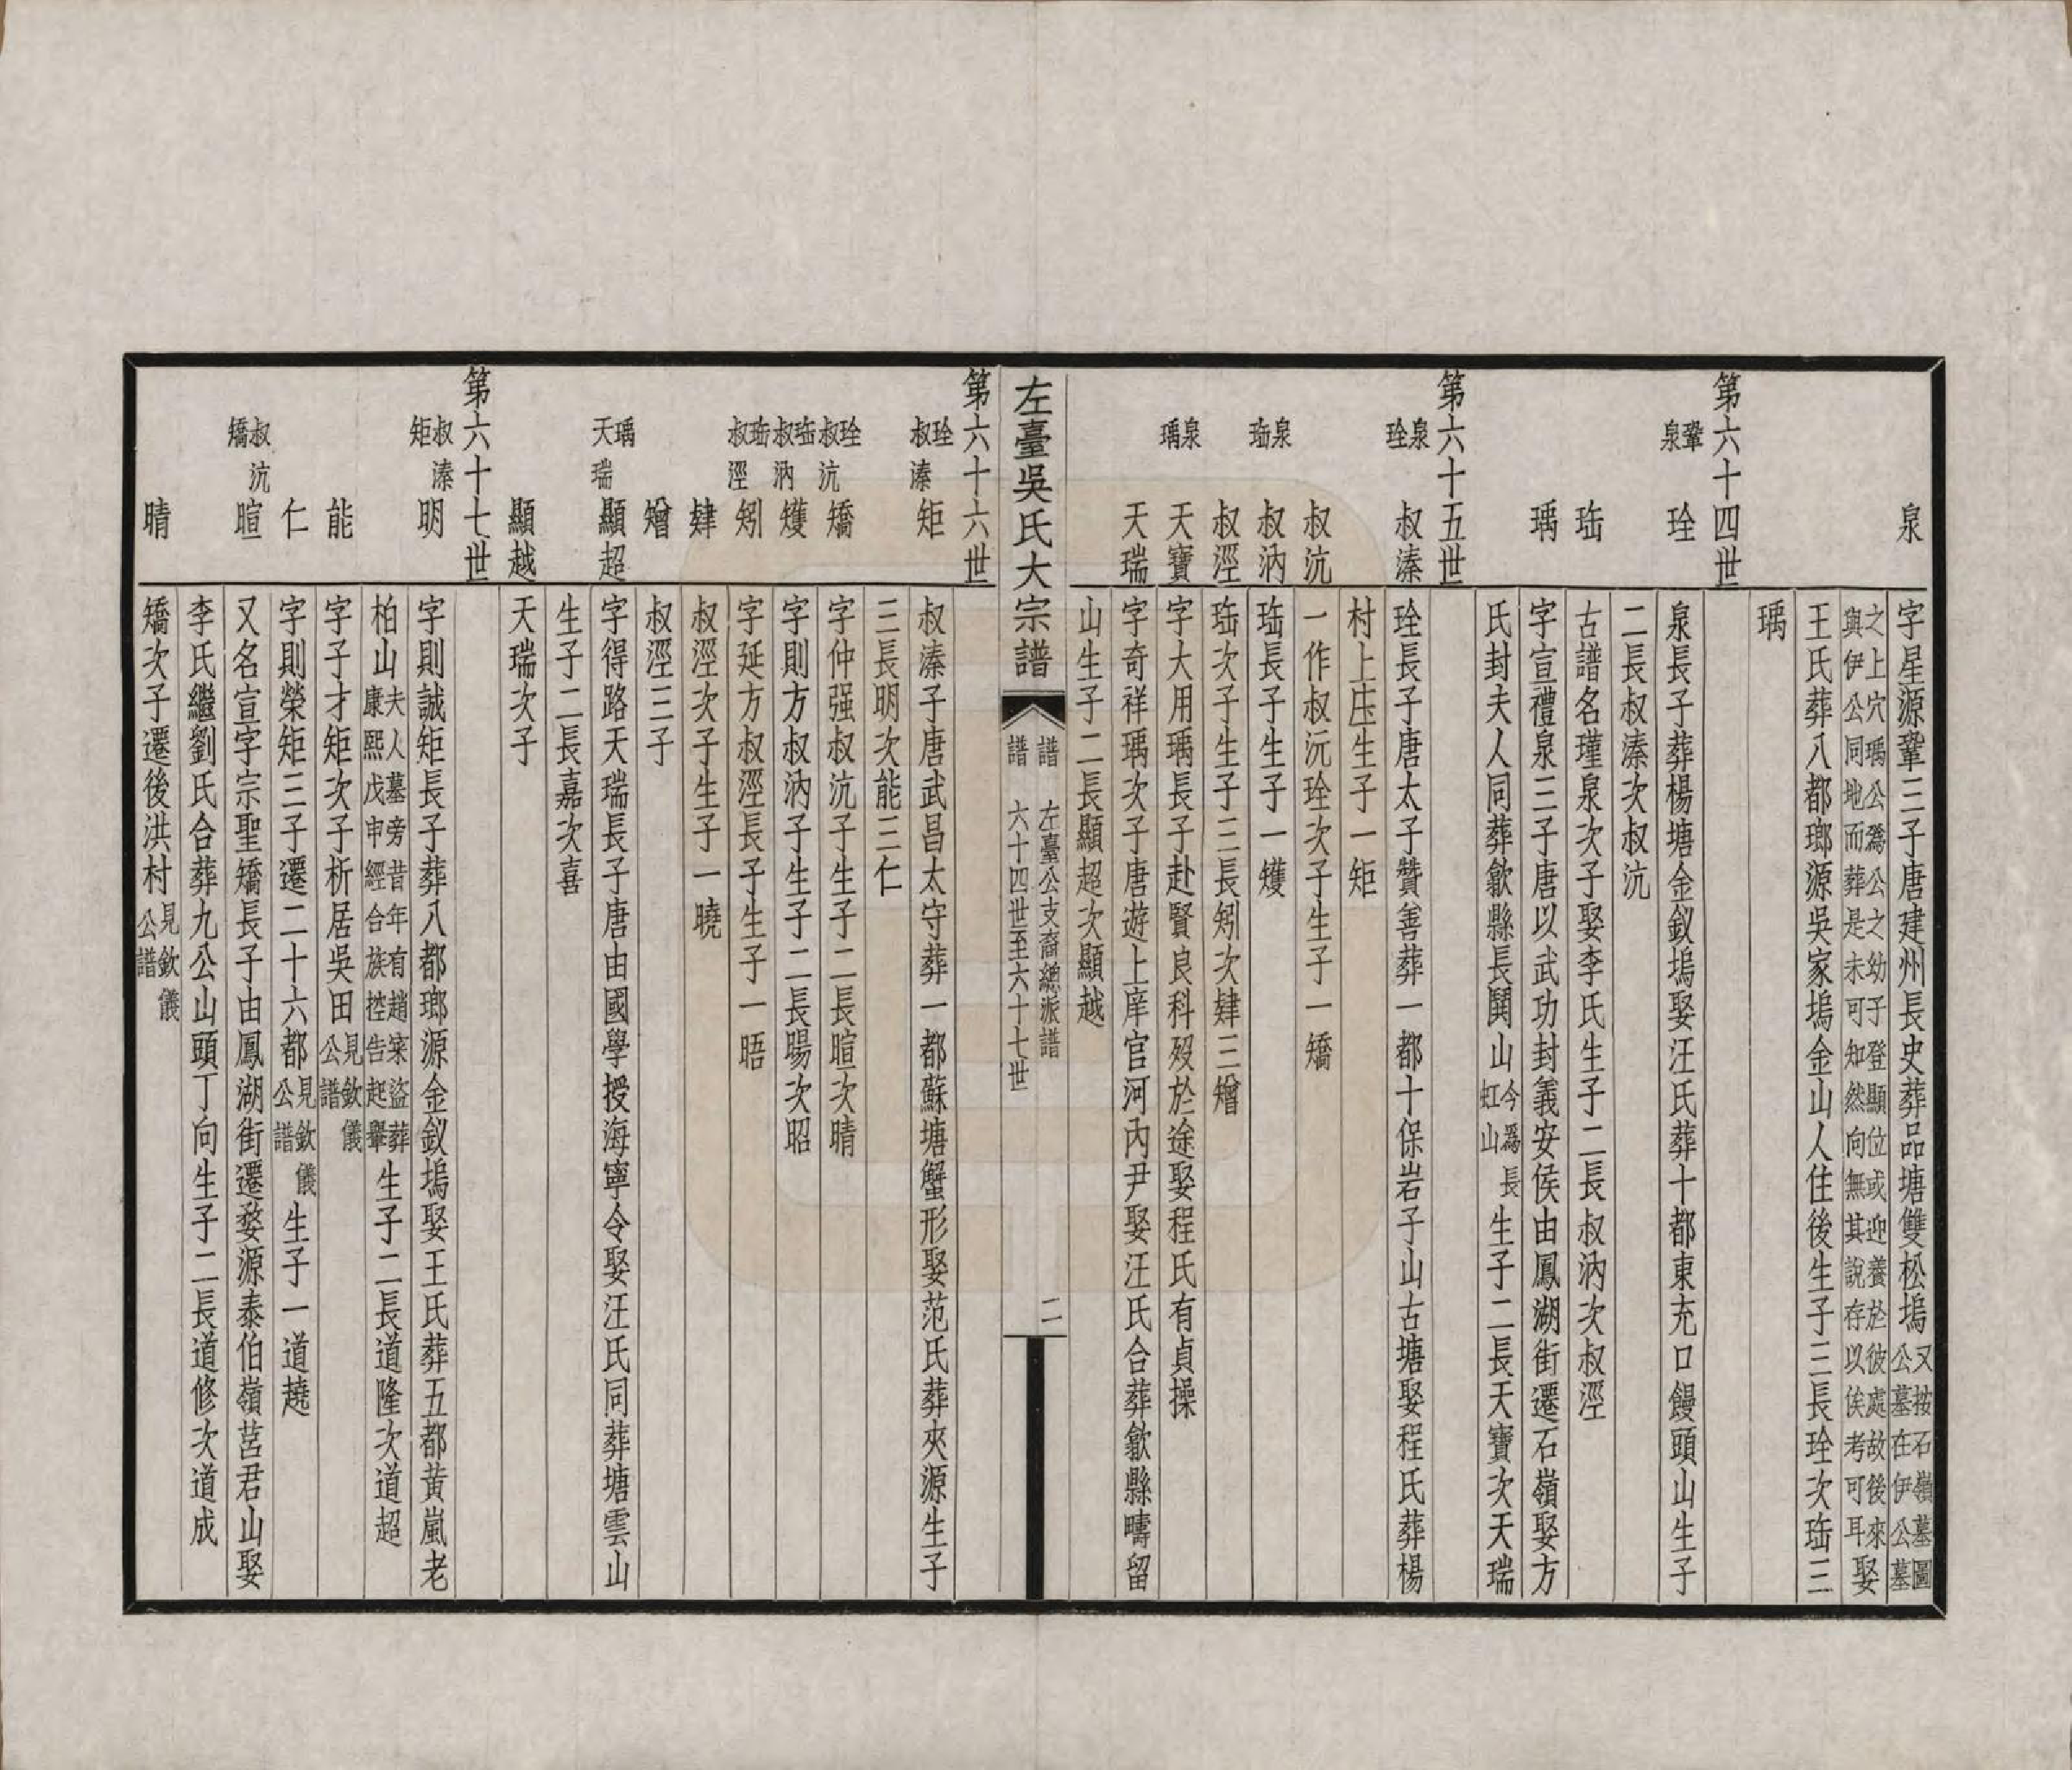 泉
字星源鞏三子唐建州長史葬品塘雙松塢又按石嶺墓圖公墓在伊公墓
之上穴瑀公爲公之幼子登顯位或迎養於彼處故後來與伊公同地而葬是未可知然向無其說存以俟考可耳娶
王氏葬八都瑯源吳家塢金山人住後生子三長琻次珤三
瑀
第六十四世
鞏泉
泉長子葬楊塘金釵塢娶汪氏葬十都東充口饅頭山生子
二長叔溱次叔沆
古譜名瑾泉次子娶李氏生子二長叔汭次叔涇
瑀
字宣禮泉三子唐以武功封義安侯由鳳湖街遷石嶺娶方
氏封夫人同葬歙縣長閧山今爲長虹山生子二長天寶次天瑞
第六十五世
叔溱
長子唐太子贊善葬一都十保岩子山古塘娶程氏葬楊
村上庄生子一矩
叔沆
一作叔沅琻次子生子一矯
叔汭
長子生子一矱
叔涇
次子生子三長矧次肄三矰
泉瑀
天寶
字大用瑀長子赴賢良科歿於途娶程氏有貞操
天瑞
字奇祥瑀次子唐遊上庠官河內尹娶汪氏合葬歙縣疇留
山生子二長顯超次顯越
左臺吳氏大宗譜
譜 左臺公支裔總派譜
譜 六十四世至六十七世
二
第六十六世
叔溱
矩
叔溱子唐武昌太守葬一都蘇塘蟹形娶范氏葬夾源生子
三長明次能三仁
叔沆
矯
字仲强叔沆子生子二長暄次晴
叔汭
矱
字則方叔汭子生子二長暘次昭
叔涇
矧
字延方叔涇長子生子一晤
肄
叔涇次子生子一曉
矰
叔涇三子
瑀天瑞
顯超
字得路天瑞長子唐由國學授海寧令娶汪氏同葬塘雲山
生子二長嘉次喜
顯越
天瑞次子
第六十七世
叔溱矩
明
字則誠矩長子葬八都瑯源金釵塢娶王氏葬五都黄嵐老
柏山夫人墓旁昔年有趙寀盜葬康熙戊申經合族控告起轝生子二長道隆次道超
能
字子才矩次子析居吳田見欽儀公譜
仁
字則榮矩三子遷二十六都見欽儀公譜生子一道趬
叔沆矯
暄
又名宣字宗聖矯長子由鳳湖街遷婺源泰伯嶺莒君山娶
李氏繼劉氏合葬九公山頭丁向生子二長道修次道成
晴
矯次子遷後洪村見欽儀公譜